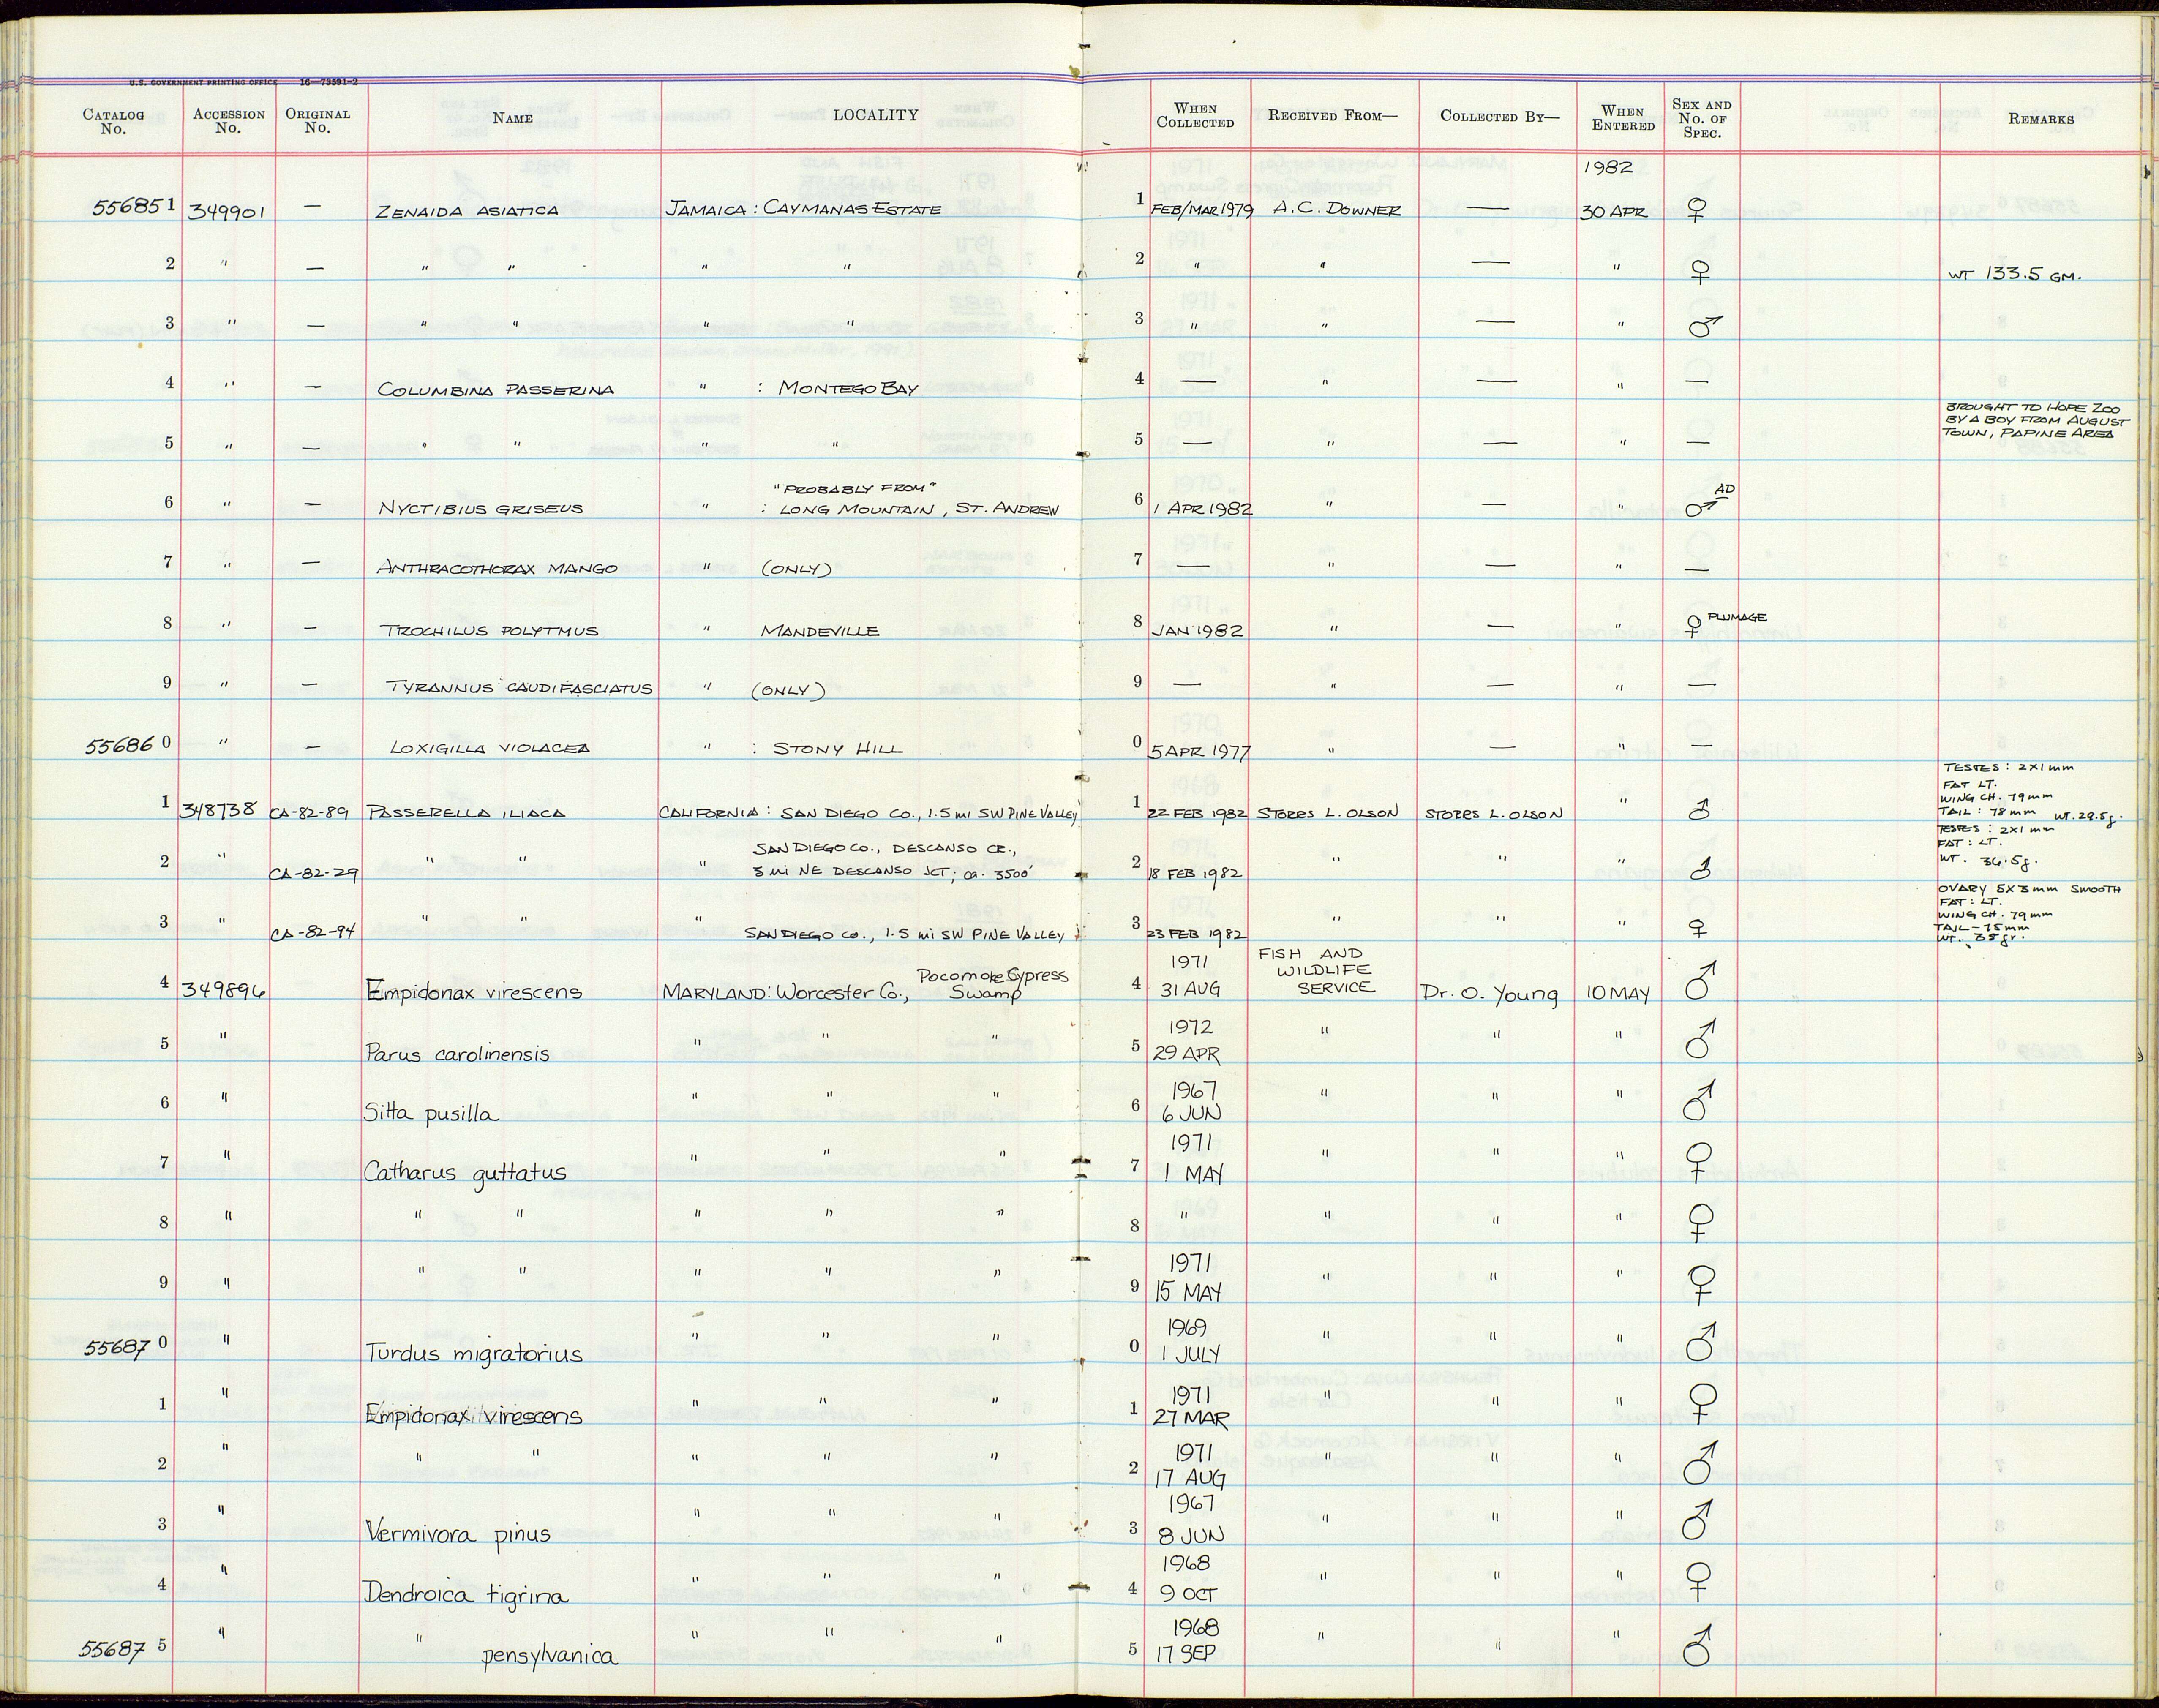 U.S. GOVERNMENT PRINTING OFFICE 16—73591-2
CATALOG No. ACCESSION No. ORIGINAL No. NAME LOCALITY WHEN COLLECTED RECEIVED FROM— COLLECTED BY— WHEN ENTERED SEX AND No. OF SPEC. REMARKS
1982
556851 349901 — ZENAIDA ASIATICA JAMAICA : CAYMANAS ESTATE 1 FEB/MAR 1979 A.C. DOWNER — 30 APR ♀
2 " — " " " " 2 " " — " ♀ WT 133.5 GM.
3 " — " " " " 3 " " — " ♂
4 " — COLUMBINA PASSERINA " : MONTEGO BAY 4 — " — " —
5 " — " " " " 5 — " — " — BROUGHT TO HOPE ZOO
BY A BOY FROM AUGUST
TOWN, PAPINE AREA
"PROBABLY FROM"
6 " — NYCTIBIUS GRISEUS " : LONG MOUNTAIN, ST. ANDREW 6 1 APR 1982 " — " ♂ AD
7 " — ANTHRACOTHORAX MANGO " (ONLY) 7 — " — " —
8 " — TROCHILUS POLYTMUS " MANDEVILLE 8 JAN 1982 " — " ♀ PLUMAGE
9 " — TYRANNUS CAUDIFASCIATUS " (ONLY) 9 — " — " —
556860 " — LOXIGILLA VIOLACEA " : STONY HILL 0 5 APR 1977 " — " —
1 348738 CA-82-89 PASSERELLA ILIACA CALIFORNIA : SAN DIEGO CO., 1.5 mi SW PINE VALLEY 1 22 FEB 1982 STORRS L. OLSON STORRS L. OLSON " ♂ TESTES : 2X1 mm
FAT LT.
WING CH. 79 mm
TAIL : 78 mm WT. 29.5 g.
2 " CA-82-29 " " " SAN DIEGO CO., DESCANSO CR.,
3 mi NE DESCANSO JCT; ca. 3500' 2 18 FEB 1982 " " " ♂ TESTES : 2X1 mm
FAT : LT.
WT. 34.5 g.
3 " CA-82-94 " " " SAN DIEGO CO., 1.5 mi SW PINE VALLEY 3 23 FEB 1982 " " " ♀ OVARY 5X3 mm SMOOTH
FAT : LT.
WING CH. 79 mm
TAIL - 75 mm
WT. 35 gr.
4 349896 Empidonax virescens MARYLAND: Worcester Co., Pocomoke Cypress
Swamp 4 1971
31 AUG FISH AND
WILDLIFE
SERVICE Dr. O. Young 10 MAY ♂
5 " Parus carolinensis " " " 5 1972
29 APR " " " ♂
6 " Sitta pusilla " " " 6 1967
6 JUN " " " ♂
7 " Catharus guttatus " " " 7 1971
1 MAY " " " ♀
8 " " " " " " 8 " " " " ♀
9 " " " " " " 9 1971
15 MAY " " " ♀
556870 " Turdus migratorius " " " 0 1969
1 JULY " " " ♂
1 " Empidonax virescens " " " 1 1971
27 MAR " " " ♀
2 " " " " " " 2 1971
17 AUG " " " ♂
3 " Vermivora pinus " " " 3 1967
8 JUN " " " ♂
4 " Dendroica tigrina " " " 4 1968
9 OCT " " " ♀
556875 " " pensylvanica " " " 5 1968
17 SEP " " " ♂